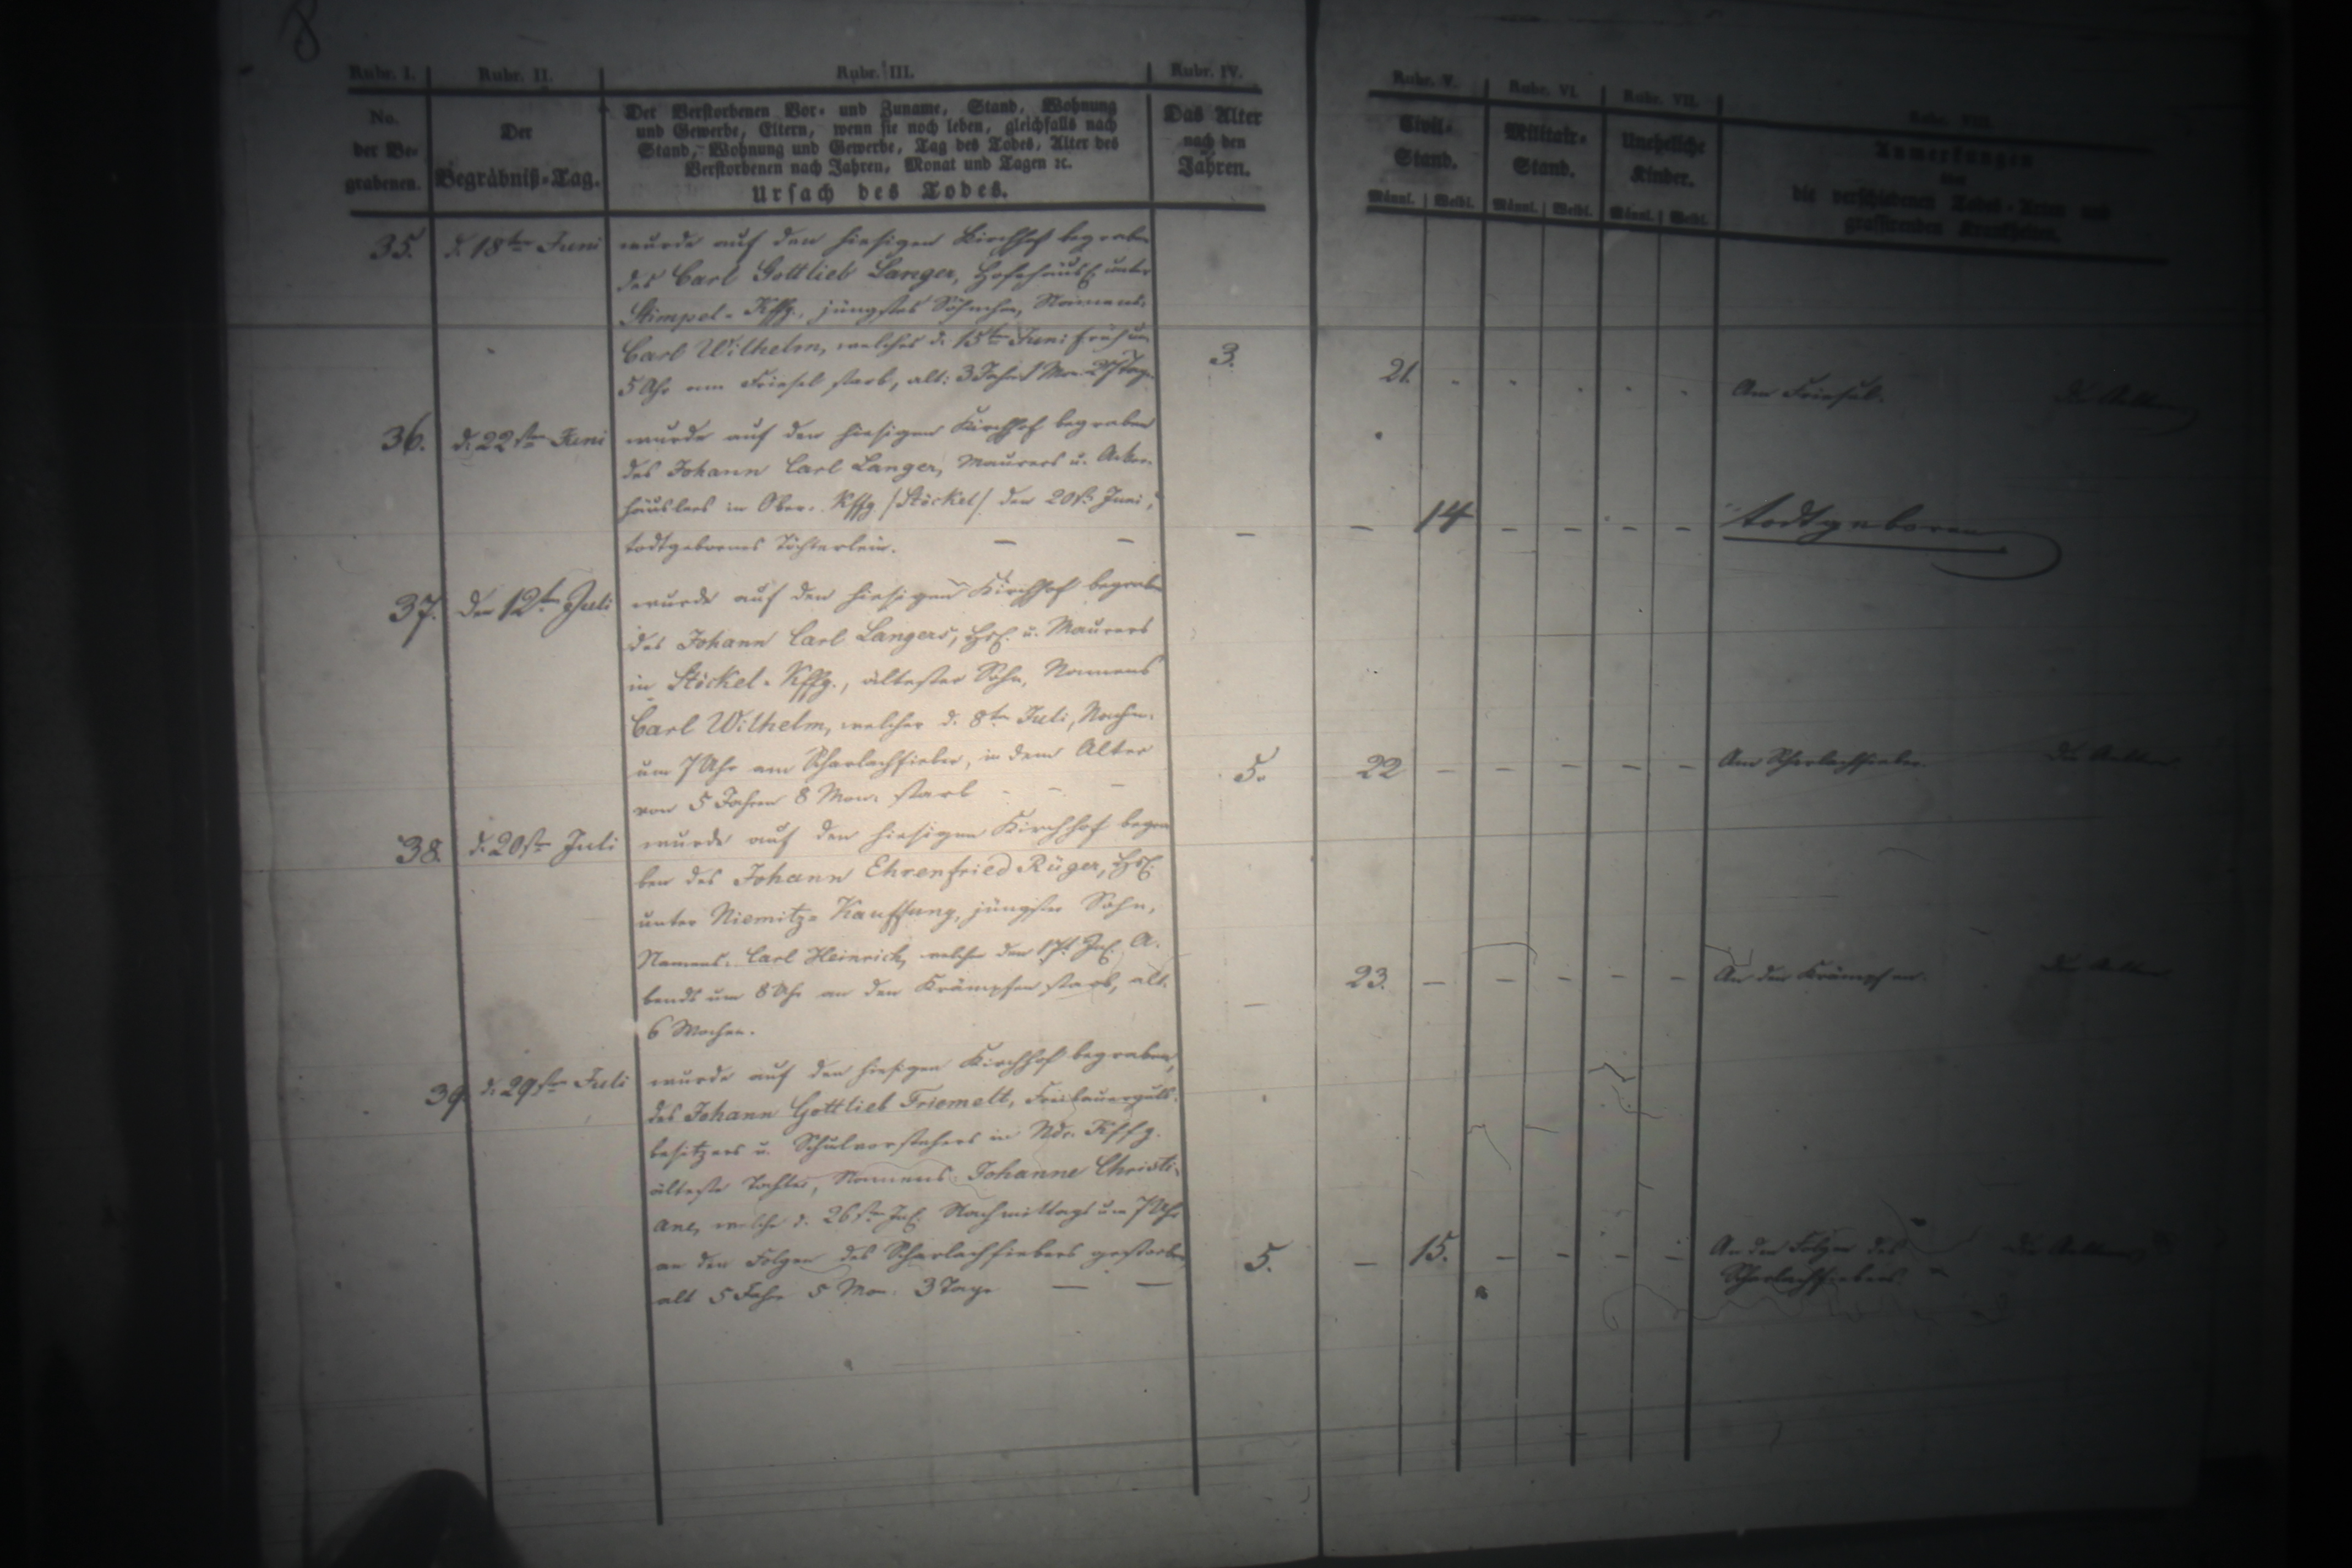 8
Rubr. I. Rubr. II. Rubr. III. Rubr. IV. Rubr. V. Rubr. VI. Rubr. VII. Rubr. VIII.
No.
der Be-
grabenen.
Der
Begräbniß-Tag.
Der Verstorbenen Vor- und Zuname, Stand, Wohnung
und Gewerbe, Eltern, wenn sie noch leben, gleichfalls nach
Stand, Wohnung und Gewerbe, Tag des Todes, Alter des
Verstorbenen nach Jahren, Monat und Tagen ꝛc.
Ursach des Todes.
Das Alter
nach den
Jahren.
Civil-
Stand.
Männl. Weibl.
Militair-
Stand.
Männl. Weibl.
Uneheliche
Kinder.
Männl. Weibl.
Anmerkungen
über
die verschiedenen Todes-Arten und
grassirenden Krankheiten.
35. d. 18ten Juni
wurde auf den hiesigen Kirchhof begraben
des Carl Gottlieb Langer, unter
Stimpel-Kffg., jüngstes Söhnchen, Namens:
Carl Wilhelm, welches d. 15ten Juni früh um
5 Uhr am Friesel starb, alt: 3 Jahr 1 Mon. 27 Tage
3. 21. Am Friesel.
36. d. 22sten Juni
wurde auf den hiesigen Kirchhof begraben
des Johann Carl Langer, Maurers u. Acker-
häuslers in Ober-Kffg. /Stöckel/ den 20st. Juni,
todtgebornes Töchterlein. — —
— — 14 — — — — todtgeboren
37. Den 12ten Juli
wurde auf den hiesigen Kirchhof begraben
des Johann Carl Langers, Hsl. u. Maurers
in Stöckel-Kffg., ältester Sohn, Namens
Carl Wilhelm, welcher d. 8ten Juli, Nachm.
um 7 Uhr am Scharlachfieber, in dem Alter
von 5 Jahren 8 Mon. starb - - -
5. 22 — — — — — Am Scharlachfieber. Die Aeltern
38. d. 20sten Juli
wurde auf den hiesigen Kirchhof begra
ben des Johann Ehrenfried Rüger, Hsl.
unter Niemitz-Kauffung, jüngster Sohn,
Namens: Carl Heinrich, welcher den 17t. Jul. A-
bends um 8 Uhr an den Krämpfen starb, alt.
6 Wochen.
— 23. — — — — — An den Krämpfen. Die Aeltern
39. d. 29sten Juli
wurde auf den hiesigen Kirchhof begraben,
des Johann Gottlieb Friemelt, Freibauerguts-
besitzers u. Schulvorstehers in Ndr. Kffg.
älteste Tochter, Namens: Johanne Christi-
ane, welche d. 26sten Jul. Nachmittags um 7 Uhr
an den Folgen des Scharlachfiebers gestorben,
alt 5 Jahr 5 Mon. 3 Tage — —
5. — 15. — — — — An den Folgen des Die Aeltern
Scharlachfiebers.